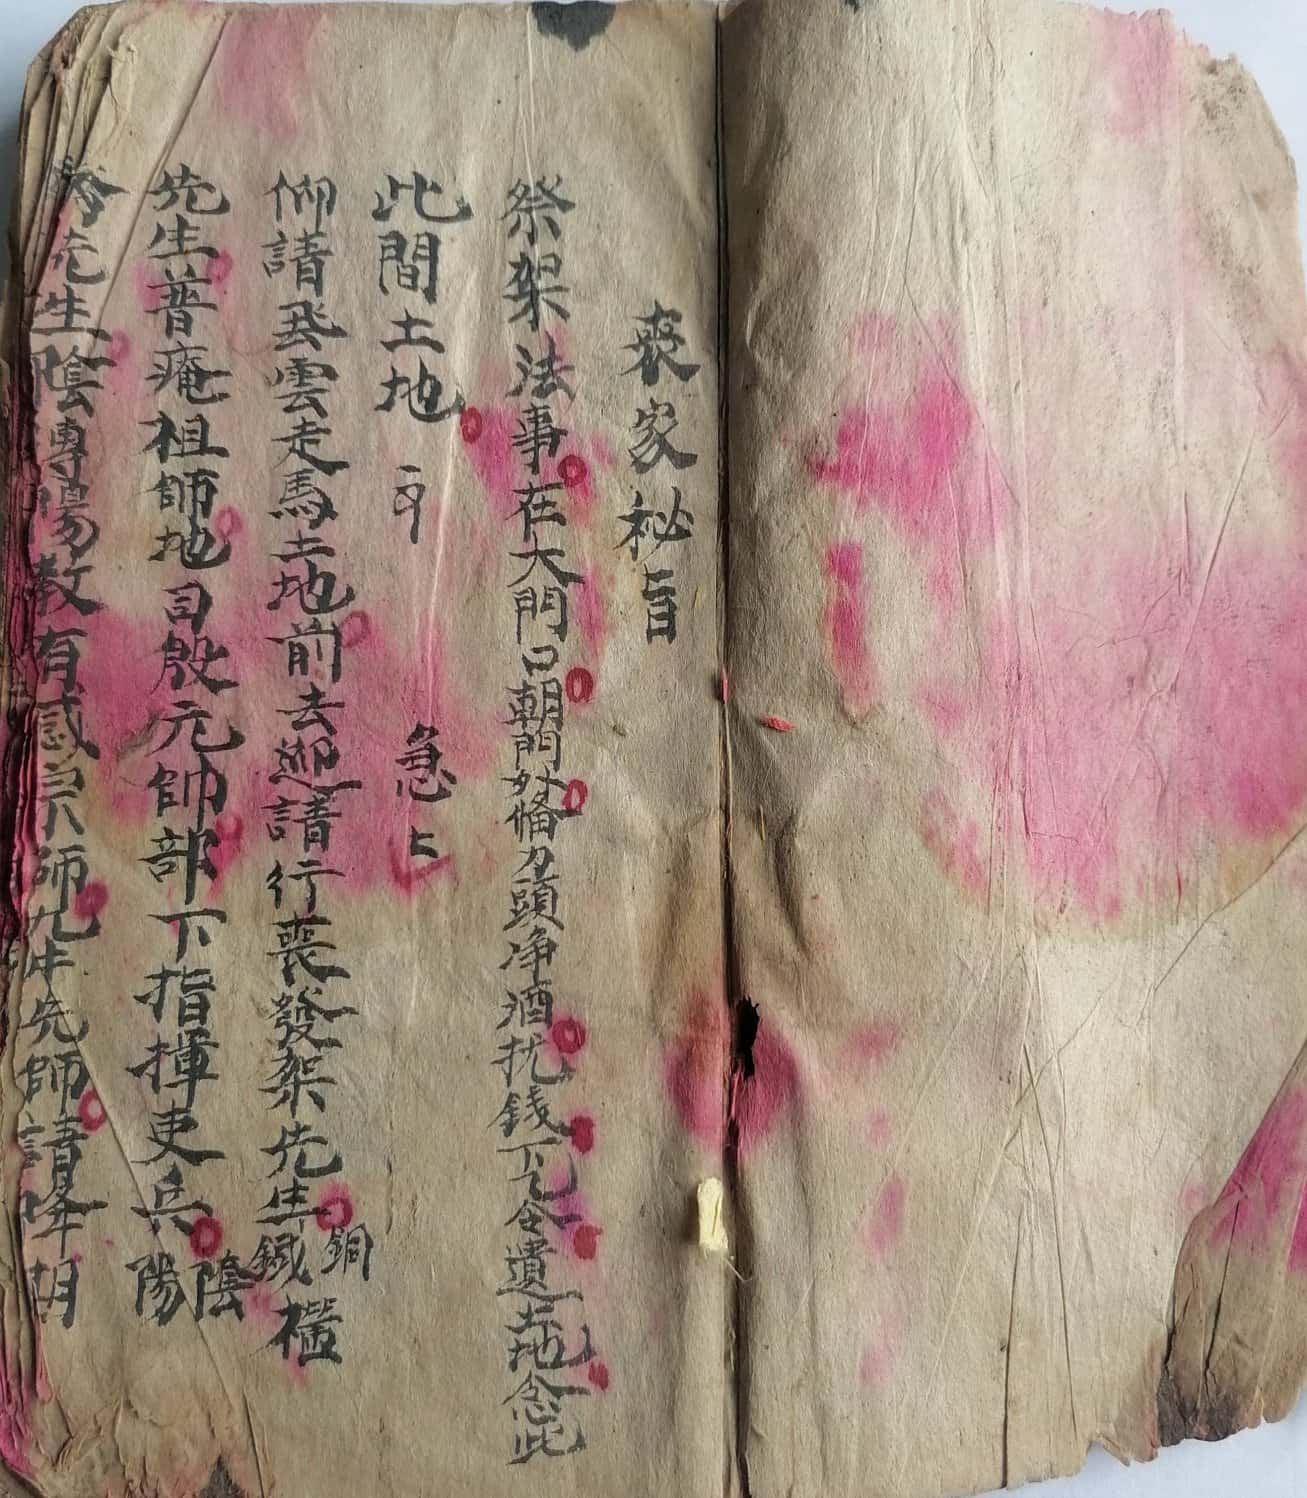 喪家秘旨
祭架法事在大門口朝門外俻刀頭净酒扰錢下已令遣土地念此
此間土地 急上
仰請飛雲走馬土地前去迎請行喪發架先生銅鐵檻
先生普庵祖師地司殷元帥部下指揮吏兵陰陽
先生陰傳陽教有感宗師九牛先師請降